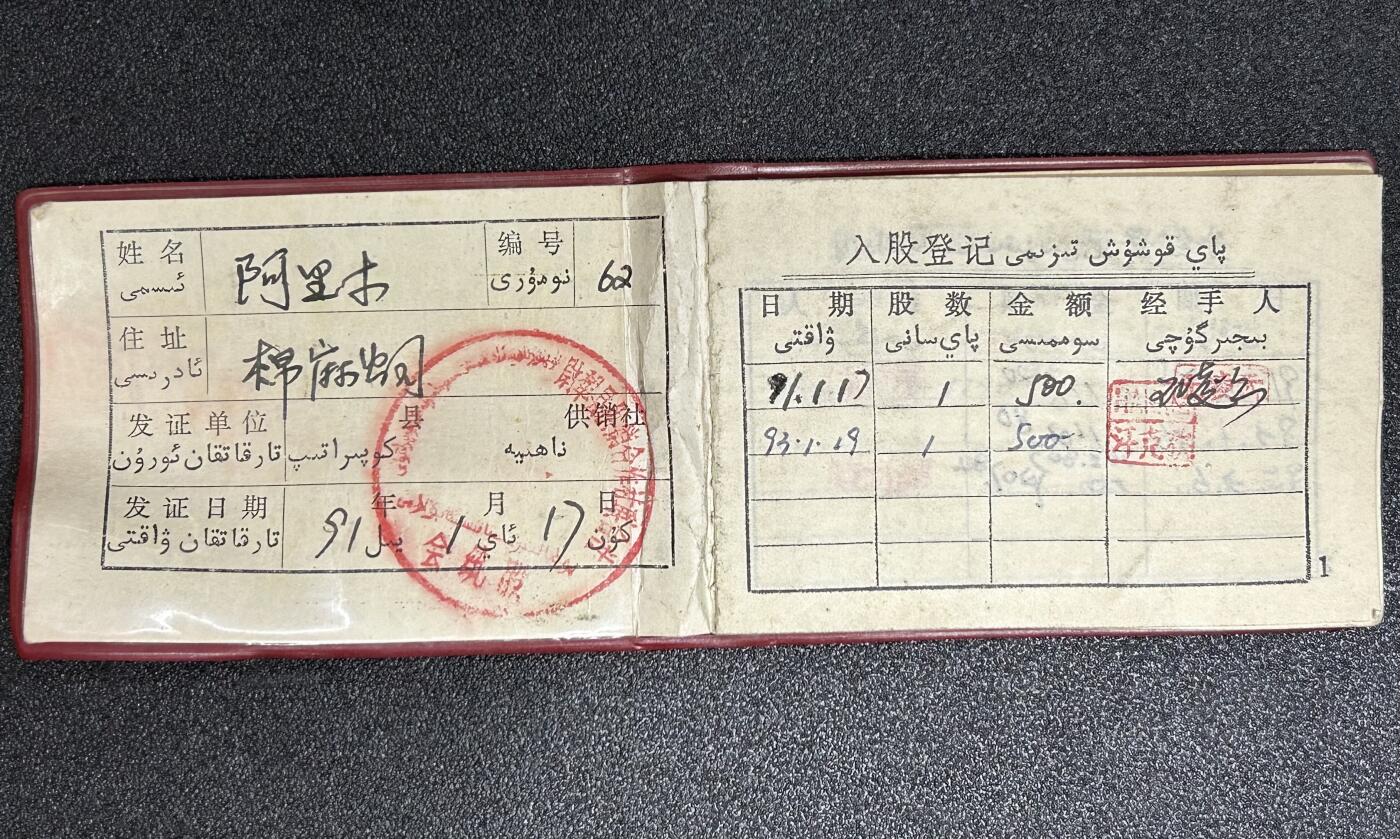 姓名 阿里木 编号 62
ئىسمى نومۇرى
住址 棉麻公司
ئادرىسى
发证单位 县 供销社
تارقاتقان ئورۇن كوپىراتىپ ناھىيە
发证日期 91 年 1 月 17 日
تارقاتقان ۋاقتى يىل ئاي كۈن
入股登记 پاي قوشۇش تىزىمى
日期 股数 金额 经手人
ۋاقتى پاي سانى سوممىسى بىجىرگۈچى
91.1.17 1 500.
93.1.19 1 500.
1